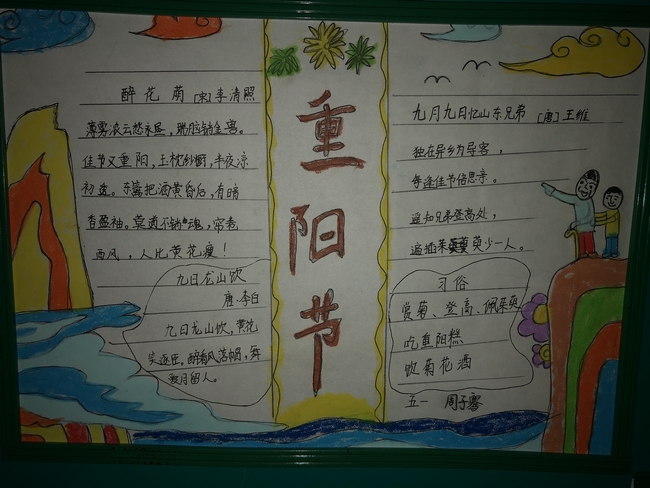 醉花荫 [宋] 李清照
薄雾浓云愁永昼,瑞脑销金兽。
佳节又重阳,玉枕纱橱,半夜凉
初透。东篱把酒黄昏后,有暗
香盈袖。莫道不销魂,帘卷
西风,人比黄花瘦!
九日龙山饮
唐·李白
九日龙山饮,黄花
笑逐臣。醉看风落帽,舞
爱月留人。
重阳节
九月九日忆山东兄弟 [唐] 王维
独在异乡为异客,
每逢佳节倍思亲。
遥知兄弟登高处,
遍插茱萸少一人。
习俗
赏菊、登高、佩茱萸
吃重阳糕
饮菊花酒
五一 周子骞